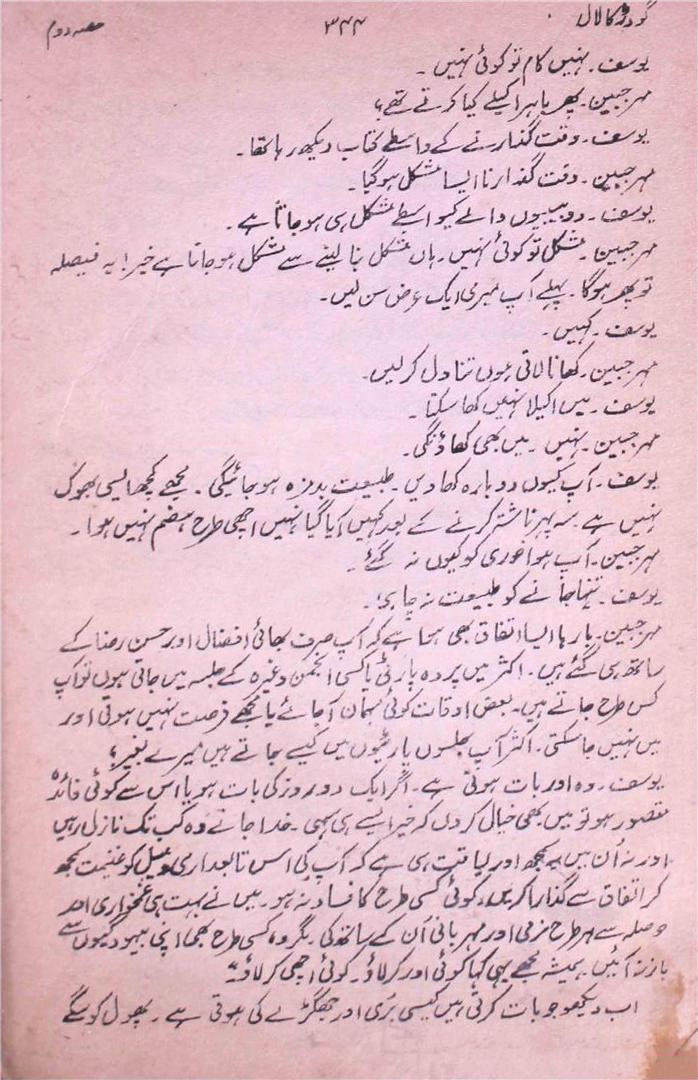 گودڑ کا لال ۳۴۴ حصہ دوم
یوسف ۔ نہیں کام تو کوئی نہیں ۔
مہر جبین ۔ پھر باہر اکیلے کیا کرتے تھے؟
یوسف ۔ وقت گذارنے کے واسطے کتاب دیکھ رہا تھا ۔
مہر جبین ۔ وقت گذارنا ایسا مشکل ہو گیا ۔
یوسف ۔ دو بیبیوں والے کیواسطے مشکل ہی ہو جاتا ہے ۔
مہر جبین ۔ مشکل تو کوئی نہیں ۔ ہاں مشکل بنا لینے سے مشکل ہو جاتا ہے خیر! یہ فیصلہ
تو پھر ہوگا ۔ پہلے آپ میری ایک عرض سن لیں ۔
یوسف ۔ کہیں ۔
مہر جبین ۔ کھانا لاتی ہوں تناول کر لیں ۔
یوسف ۔ میں اکیلا نہیں کھا سکتا ۔
مہر جبین ۔ نہیں ۔ میں بھی کھاؤنگی ۔
یوسف ۔ آپ کیوں دوبارہ کھا دیں ۔ طبیعت بدمزہ ہو جائیگی ۔ مجھے کچھ ایسی بھوک
نہیں ہے ۔ سہ پہر ناشتہ کرنے کے بعد کہیں آیا گیا نہیں اچھی طرح ہضم نہیں ہوا ۔
مہر جبین ۔ آپ ہوا خوری کو کیوں نہ گئے ۔
یوسف ۔ تنہا جانے کو طبیعت نہ چاہی ۔
مہر جبین ۔ بارہا ایسا اتفاق بھی ہوتا ہے کہ آپ صرف بھائی افضال اور حسن رضا کے
ساتھ ہی گئے ہیں ۔ اکثر میں پردہ پارٹی یا کسی انجمن وغیرہ کے جلسہ میں جاتی ہوں تو آپ
کس طرح جاتے ہیں ۔ بعض اوقات کوئی مہمان آ جائے یا مجھے فرصت نہیں ہوتی اور
میں نہیں جا سکتی ۔ اکثر آپ جلسوں پارٹیوں میں کیسے جاتے ہیں میرے بغیر؟
یوسف ۔ وہ اور بات ہوتی ہے ۔ اگر ایک دو روز کی بات ہو یا اس سے کوئی فائدہ
مقصور ہو تو میں بھی خیال کر لوں کہ خیر ایسے ہی سہی ۔ خدا جانے وہ کب تک نازل رہیں
اور نہ اُن میں کچھ اور لیاقت ہی ہے کہ آپ کی اس تابعداری و میل کو غنیمت سمجھ
کر اتفاق سے گذارا کریں، کوئی کسی طرح کا فساد نہ ہو ۔ میں نے بہت ہی غمخواری اور
حوصلہ سے ہر طرح نرمی اور مہربانی اُن کے ساتھ کی ۔ مگر وہ کسی طرح بھی اپنی بیہودگیوں سے
باز نہ آئیں ۔ ہمیشہ مجھے یہی کہا کوئی اور کر لاؤ ۔ کوئی اچھی کر لاؤ ۔
اب دیکھو جو بات کرتی ہیں کیسی بُری اور جھگڑے کی ہوتی ہے ۔ پھول کو سگے